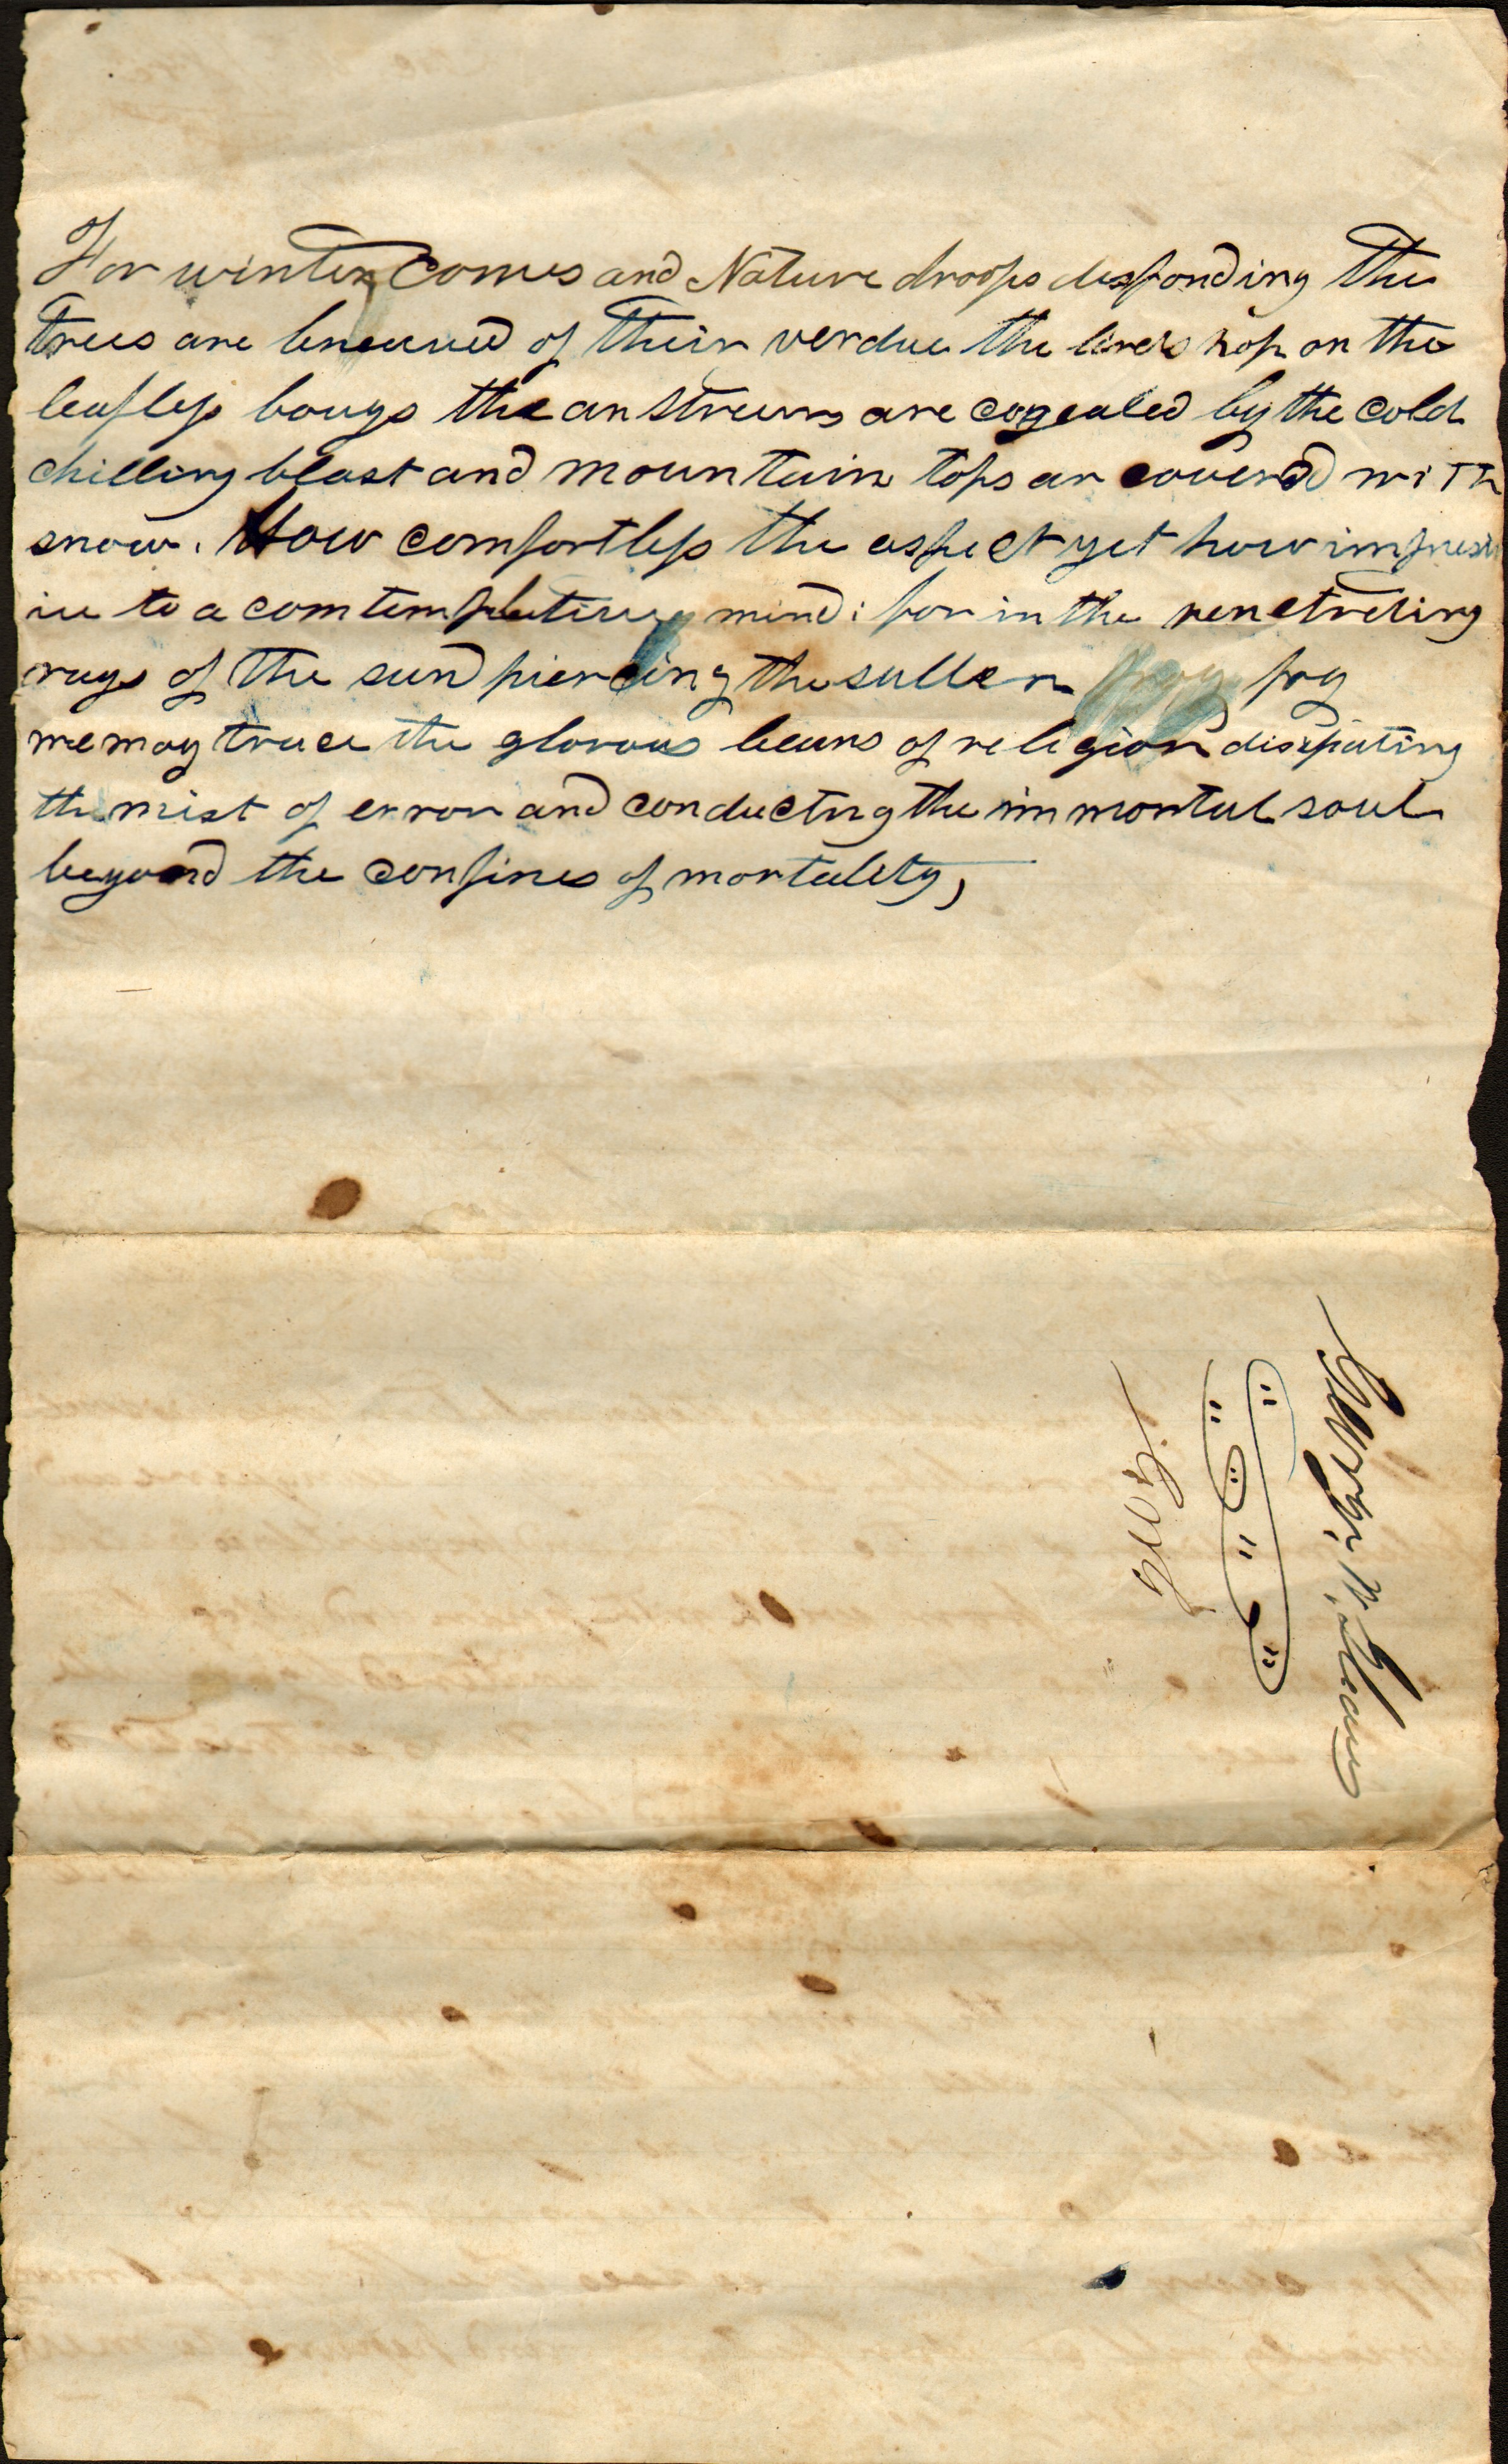 For winter comes and Nature droops desponding The
trees are bereaved of Their verdue the birds hop on the
leafless bougs the an streams are cogealed by the cold
chilling blast and mountain tops ar covered with
snow. How comfortless the aspect yet how impress
ive to a comtemplative mind: for in the penetrating
rays of the sun piercing the sullen fog
we may trace the glorous beams of religion dissipating
the mist of error and conducting the immortal soul
beyond the confines of mortality,
George W.
Geo.